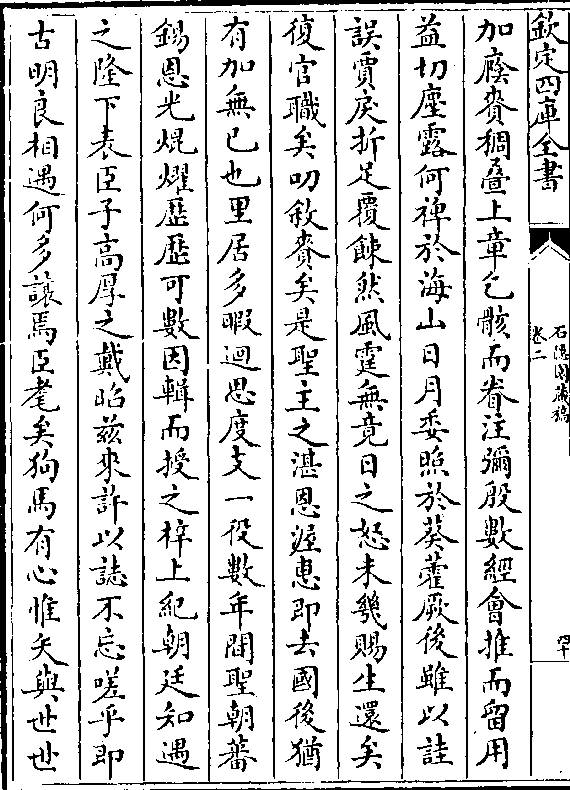 欽定四庫全書
石隱園藏稿
卷二
四十
加廕賚稠疊上章乞骸而眷注彌殷數經會推而留用
益切塵露何裨於海山日月委照於葵藿厥後雖以詿
誤賈戾折足覆餗然風霆無竟日之怒未幾賜生還矣
復官職矣叨敘賚矣是聖主之湛恩渥惠即去國後猶
有加無已也里居多暇迴思度支一役數年閒聖朝蕃
錫恩光焜燿歷歷可數因輯而授之梓上紀朝廷知遇
之隆下表臣子高厚之戴昭茲來許以誌不忘嗟乎即
古明良相遇何多讓焉臣耄矣狗馬有心惟矢與世世